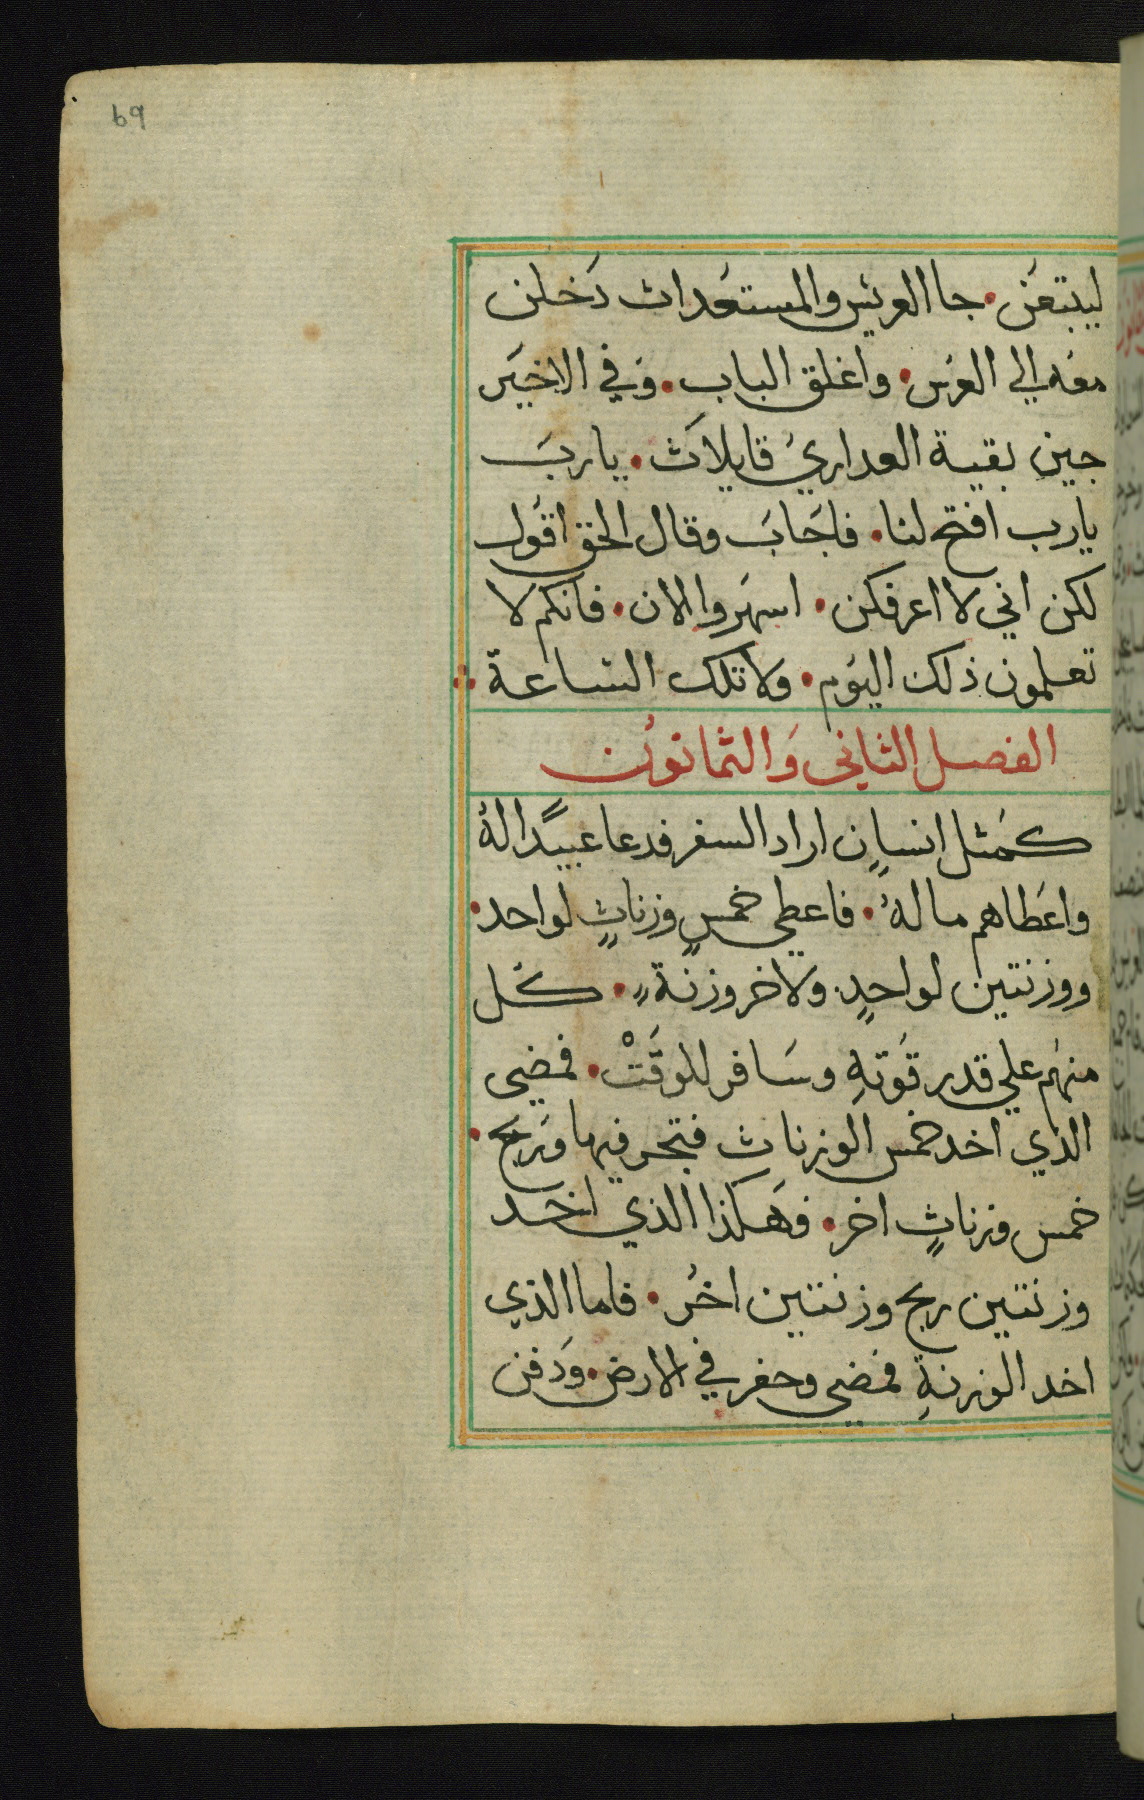 69
ليبتعن. جا العريس والمستعدات دخلن
معه الي العرس. واغلق الباب. وفي الاخير
جين بقية العداري قايلات. يارب
يارب افتح لنا. فاجاب وقال الحق اقول
لكن اني لا اعرفكن. اسهروا الان. فانكم لا
تعلمون ذلك اليوم. ولا تلك الساعة
الفصل الثاني والثمانون
كمثل انسان اراد السفر فدعا عبيدا له
واعطاهم ماله. فاعطي خمس وزنات لواحد.
ووزنتين لواحد. ولاخر وزنة. كل
منهم علي قدر قوته وسافر للوقت. فمضي
الذي اخد خمس الوزنات فتجر فيها وربح.
خمس وزنات اخر. فهكذا الذي اخد
وزنتين ربح وزنتين اخر. فاما الذي
اخد الوزنة فمضي وحفر في الارض. ودفن